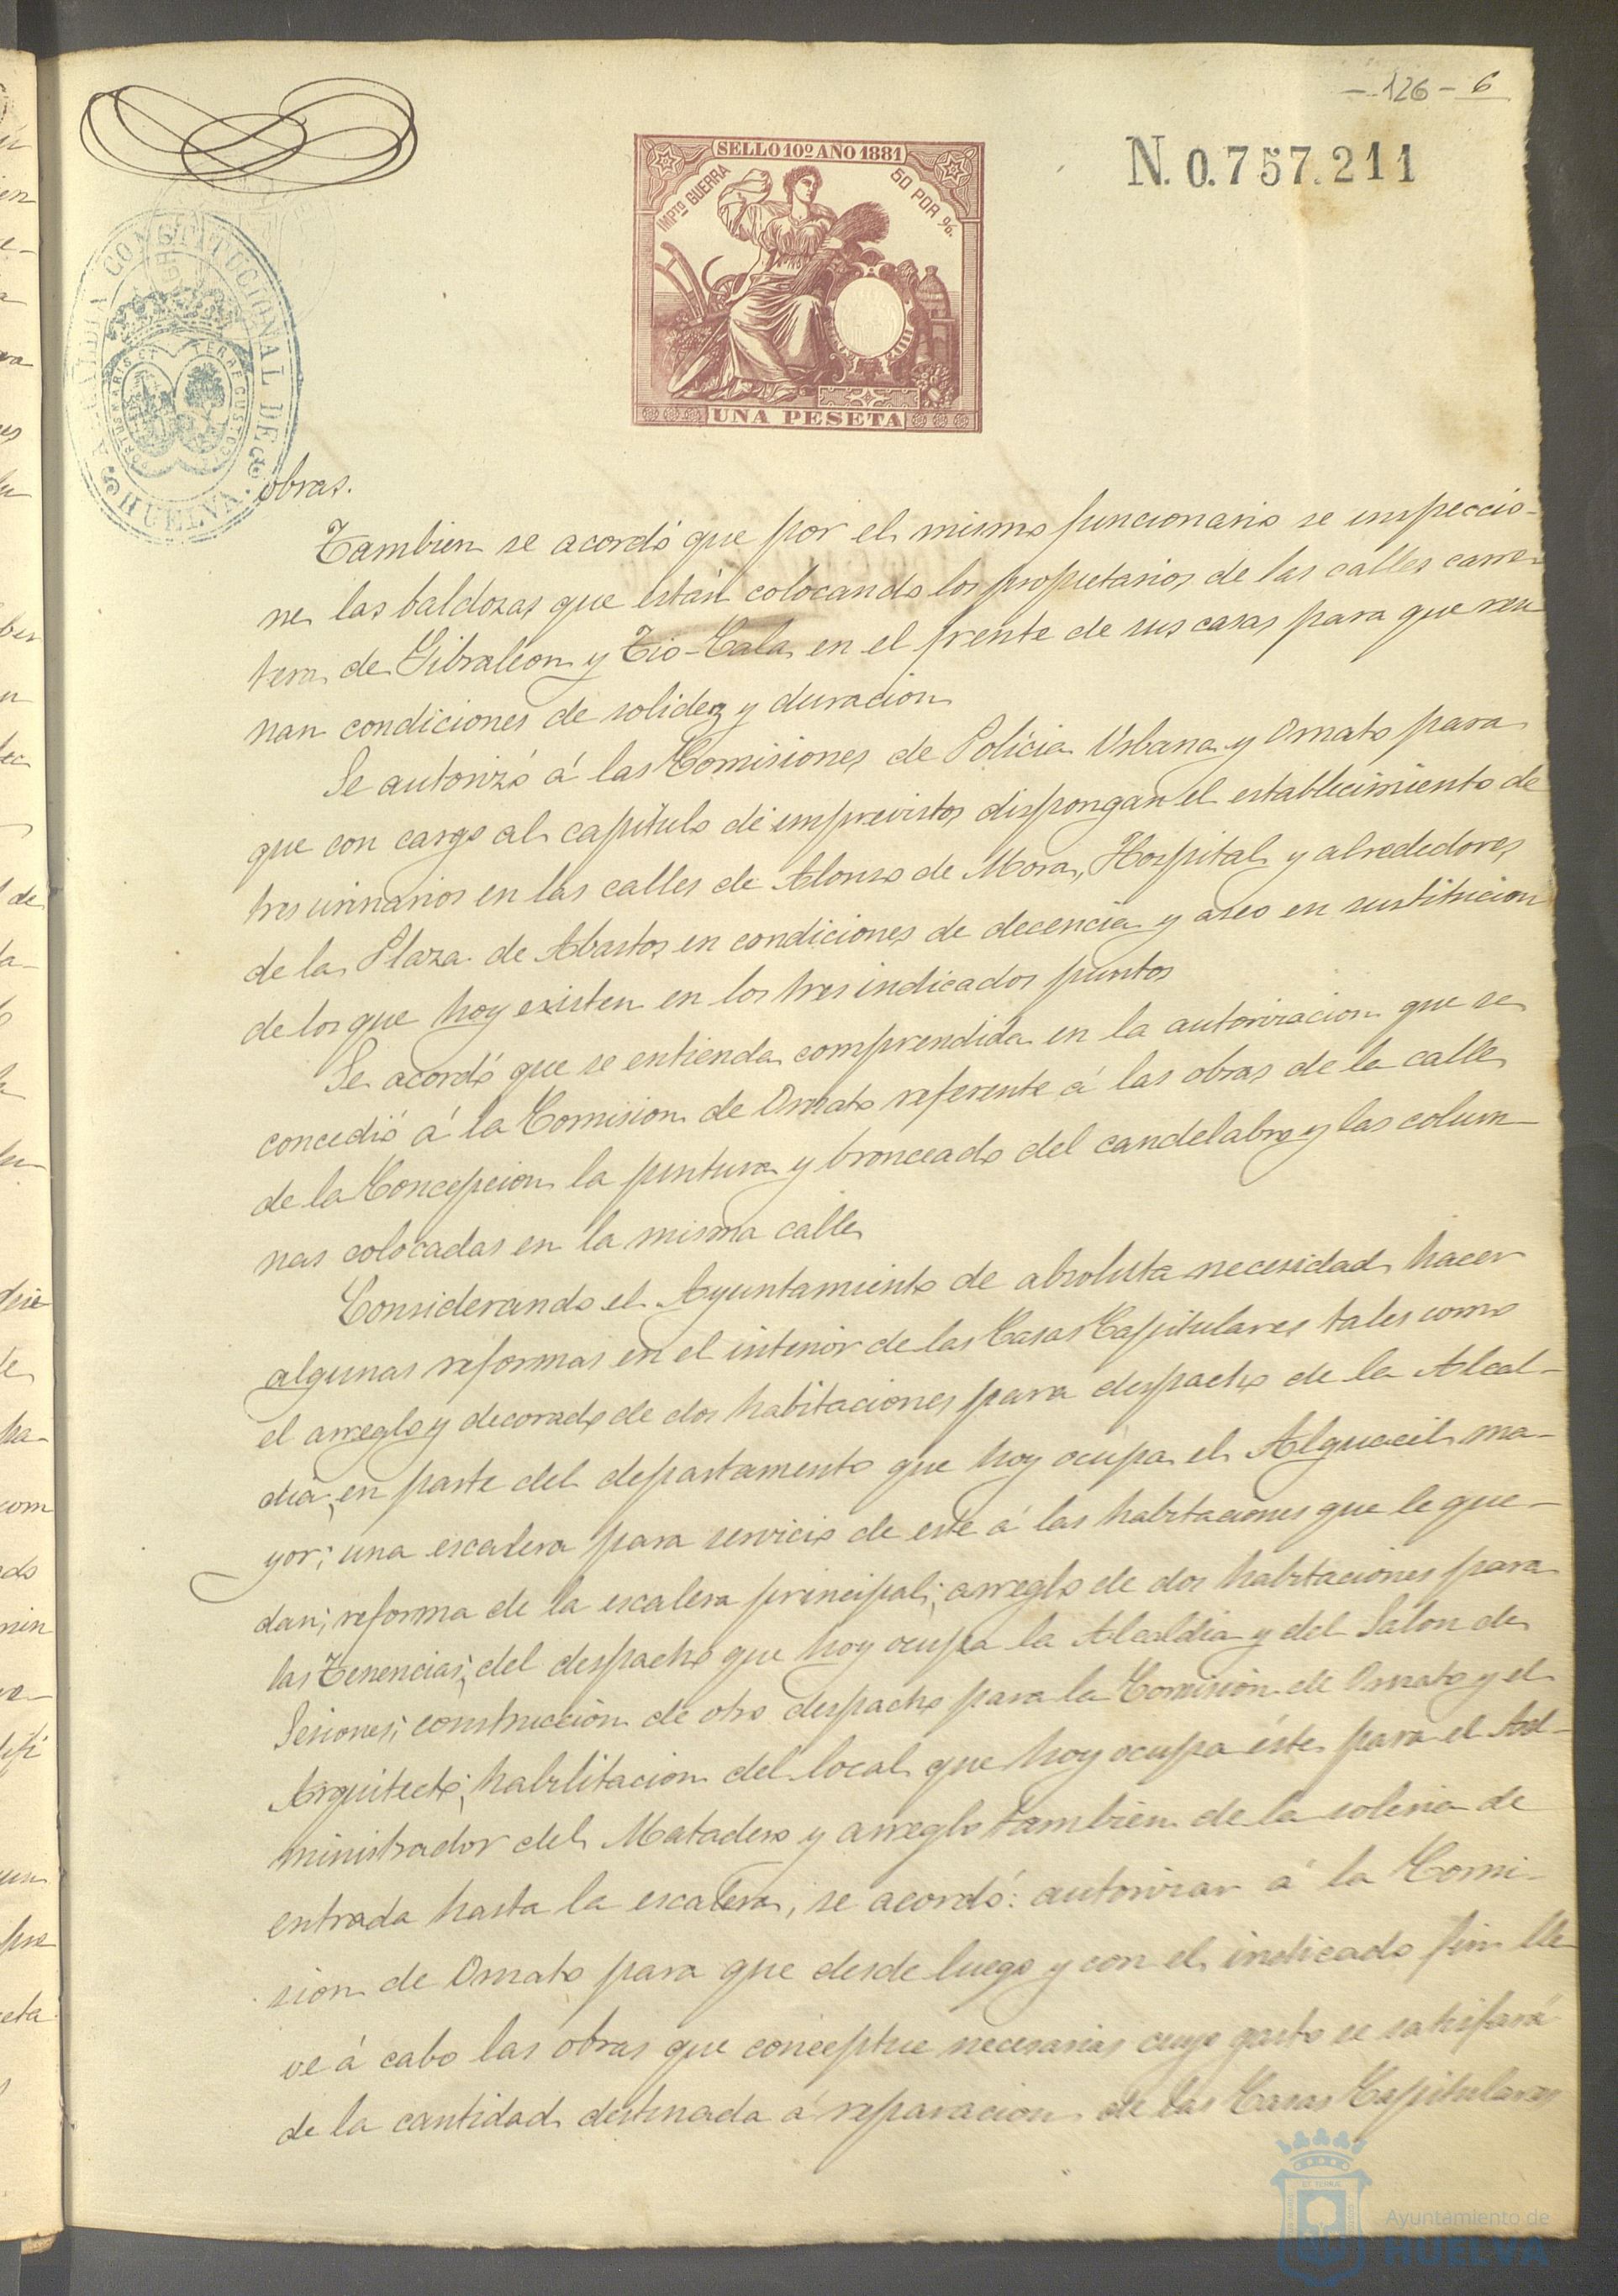 - 126 - 6
SELLO 10º AÑO 1881
IMPTO GUERRA
50 POR %.
UNA PESETA
N. 0.757.211
ALCALDIA CONSTITUCIONAL DE
HUELVA.
obras.
Tambien se acordó que por el mismo funcionario se inspeccio-
ne las baldozas que están colocando los propietarios de las calles carre-
tera de Gibraleon y Tio-Cala en el frente de sus casas para que reu
nan condiciones de solidez y duracion
Se autorizó á las Comisiones de Policia Urbana y Ornato para
que con cargo al capitulo de imprevistos dispongan el establecimiento de
tres urinarios en las calles de Alonso de Mora, Hospital y alrededores
de la Plaza de Abastos en condiciones de decencia y aseo en sustitucion
de los que hoy existen en los tres indicados puntos
Se acordó que se entienda comprendida en la autorizacion que se
concedió á la Comision de Ornato referente á las obras de la calle
de la Concepcion la pintura y bronceado del candelabro y las colum-
nas colocadas en la misma calle
Considerando el Ayuntamiento de absoluta necesidad hacer
algunas reformas en el interior de las Casas Capitulares tales como
el arreglo y decorado de dos habitaciones para despacho de la Alcal-
dia, en parte del departamento que hoy ocupa el Alguacil ma-
yor; una escalera para servicio de este á las habitaciones que le que-
dan; reforma de la escalera principal; arreglo de dos habitaciones para
las Tenencias; del despacho que hoy ocupa la Alcaldia y del Salon de
Sesiones; construccion de otro despacho para la Comision de Ornato y el
Arquitecto; habilitacion del local que hoy ocupa éste para el Ad-
ministrador del Matadero y arreglo tambien de la soleria de
entrada hasta la escalera, se acordó: autorizar á la Comi-
sion de Ornato para que desde luego y con el indicado fin lle
ve á cabo las obras que conceptue necesarias cuyo gasto se satisfará
de la cantidad destinada á reparacion de las Casas Capitulares
Ayuntamiento de
HUELVA